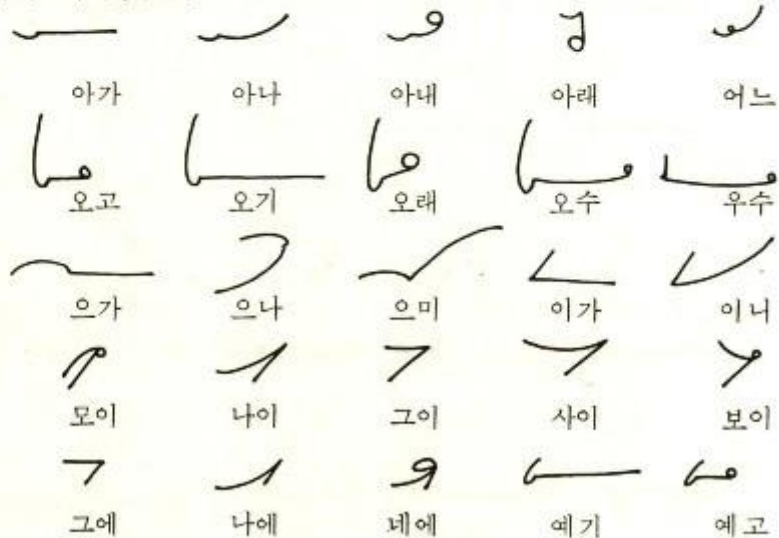 아가 아나 아내 아래 어느
오고 오기 오래 오수 우수
으가 으나 으미 이가 이니
모이 나이 그이 사이 보이
그에 나에 네에 예기 예고